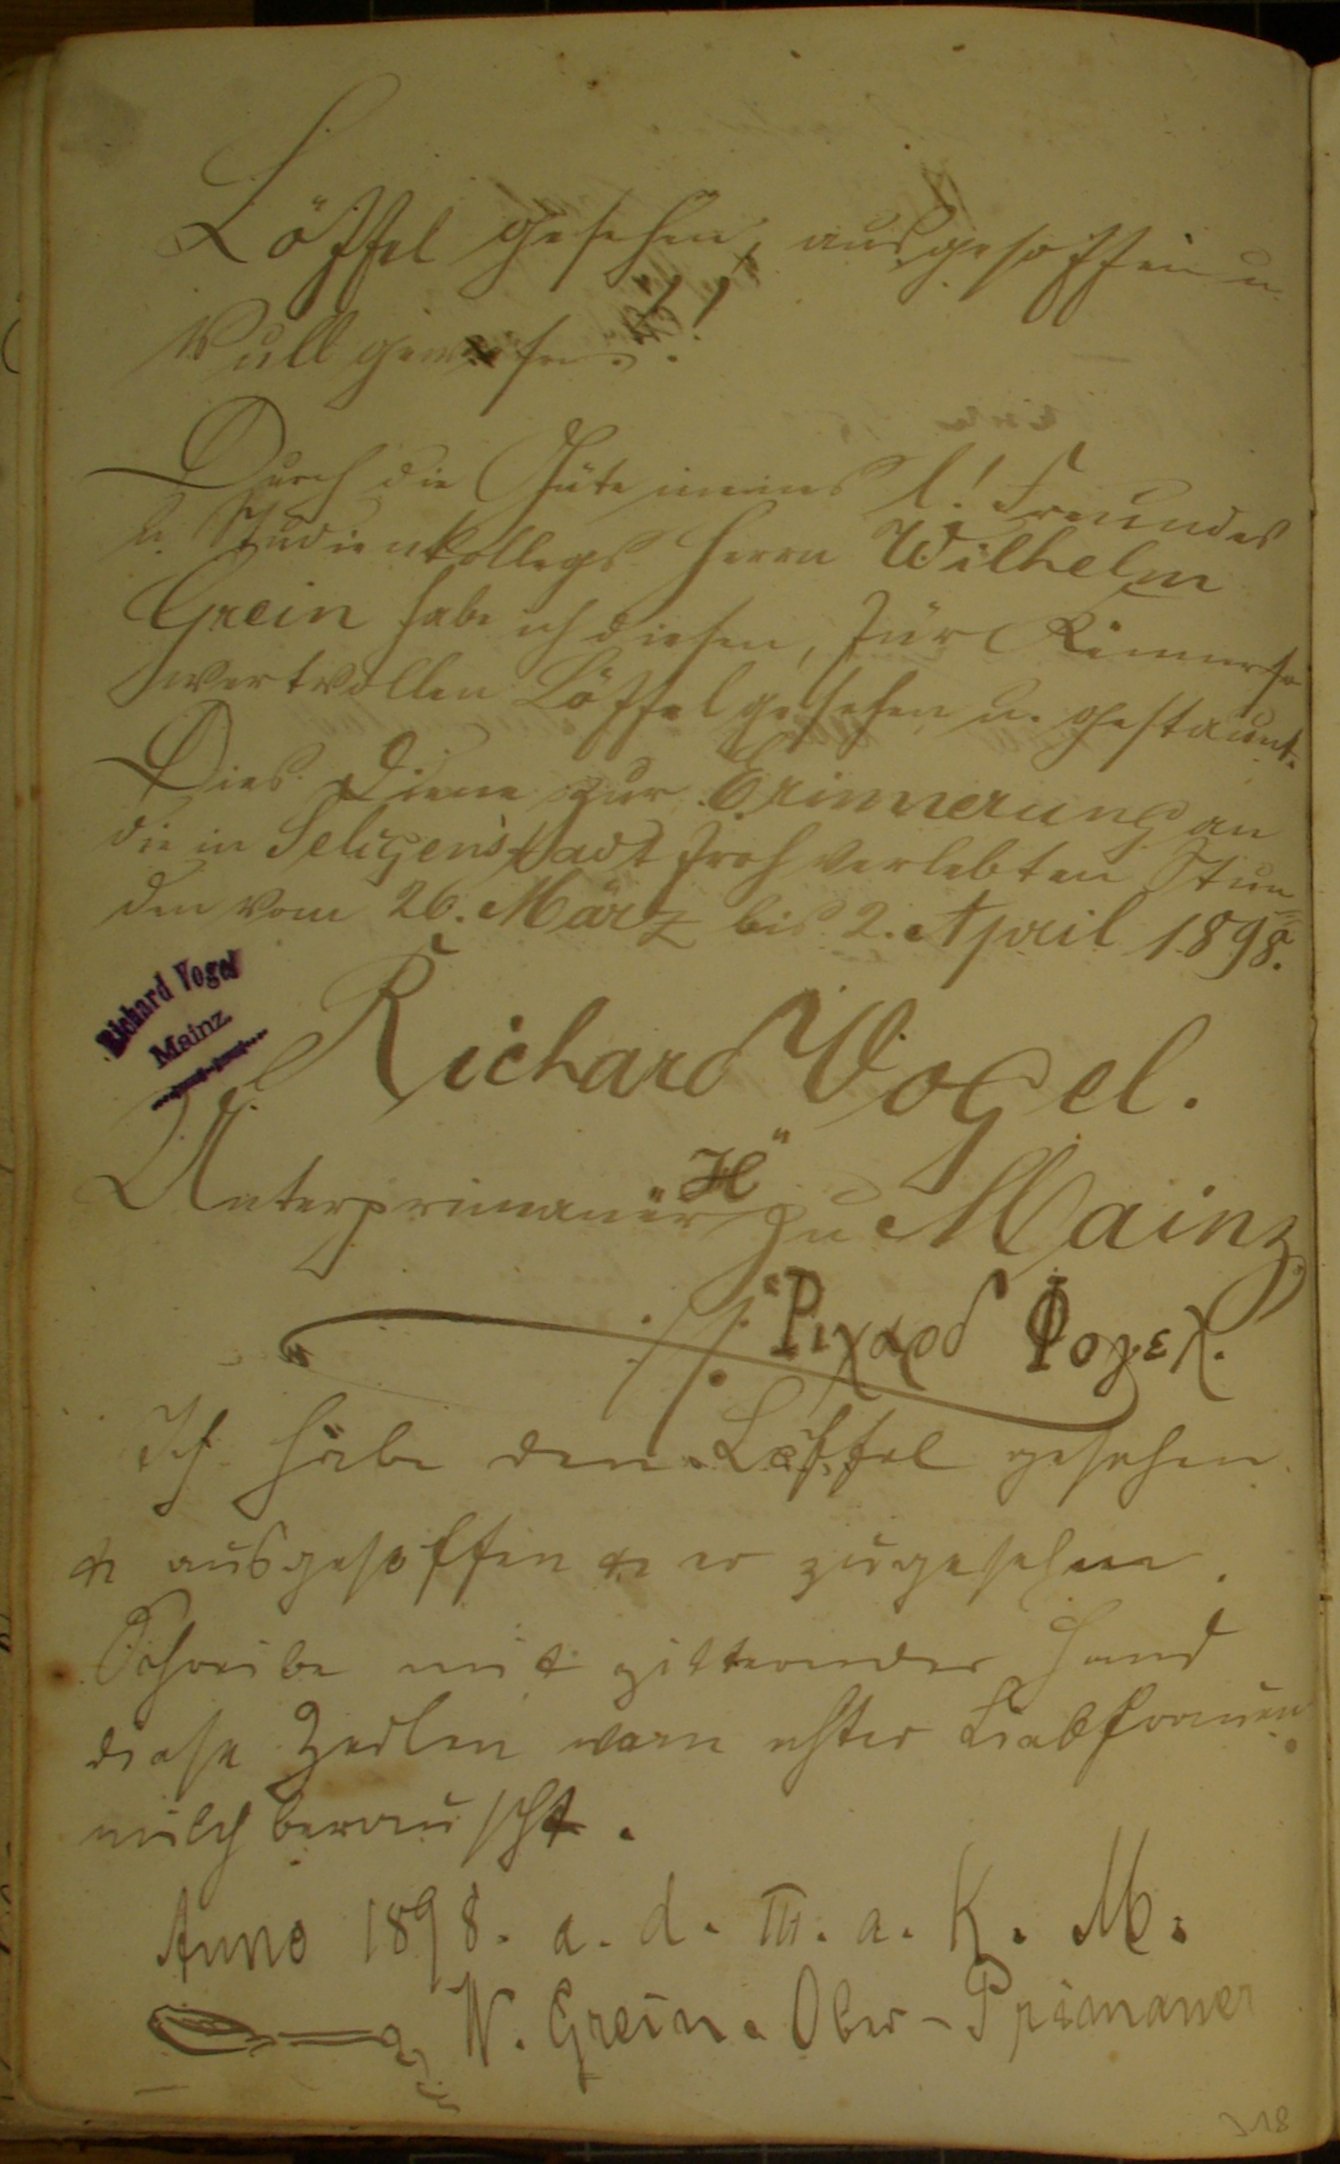 Löffel gesehen, ausgesoffen u.
Vull gewesen.!
Durch die Güte meines l! Freundes
u. Studienkollegs Herrn Wilhelm
Grein habe ich diesen, für Kenner so
wertvollen Löffel gesehen u. gestaunt.
Dies diene zur Erinnerung an
die in Seligenstadt froh verlebten Stun=
den vom 26. März bis 2. April 1898.
Richard Vogel
Mainz
Richard Vogel.
Unterprimaner zu Mainz
"Ριχαρδ Φογελ.
Ich habe den Löffel gesehen
& ausgesoffen & er zugesehen.
Schreibe mit zitternder Hand
diese Zeilen von echter Liebfrauen
milch berauscht.
Anno 1898. a. d. III. a. K. M.
W. Grein. Ober-Primaner
318